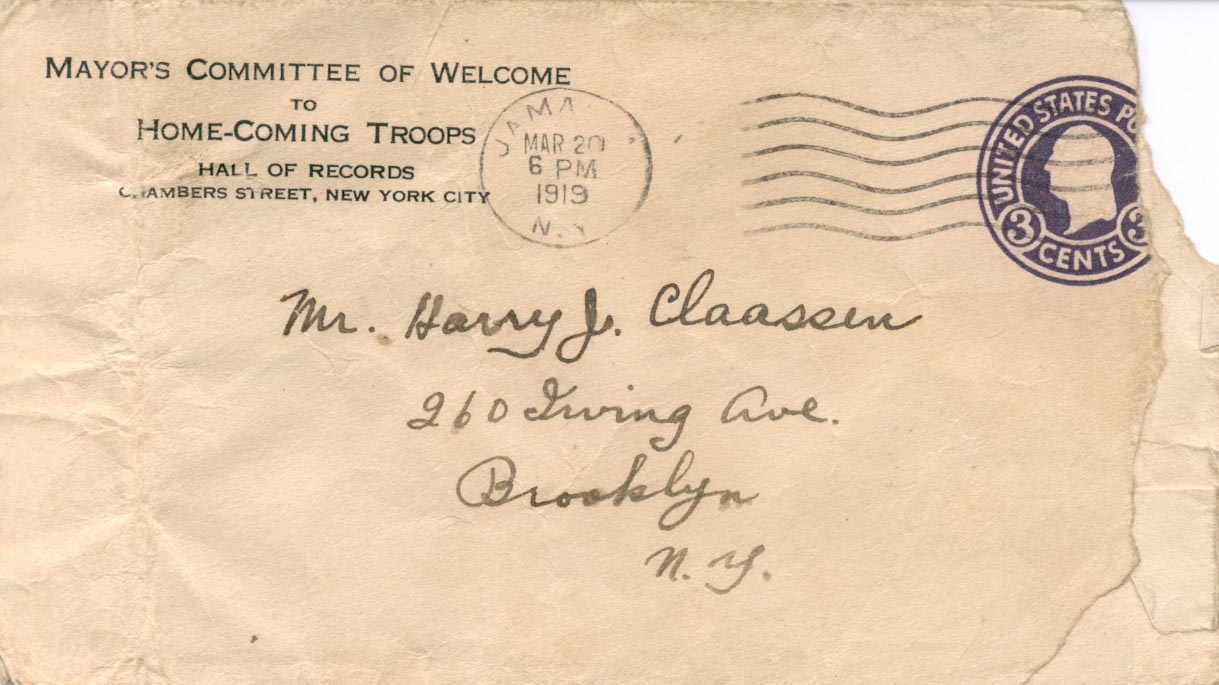 MAYOR'S COMMITTEE OF WELCOME
TO
HOME-COMING TROOPS
HALL OF RECORDS
CHAMBERS STREET, NEW YORK CITY
MAR 20
6 PM
1919
N.Y.
UNITED STATES
3 3
CENTS
Mr. Harry J. Claassen
260 Irving Ave.
Brooklyn
N.Y.